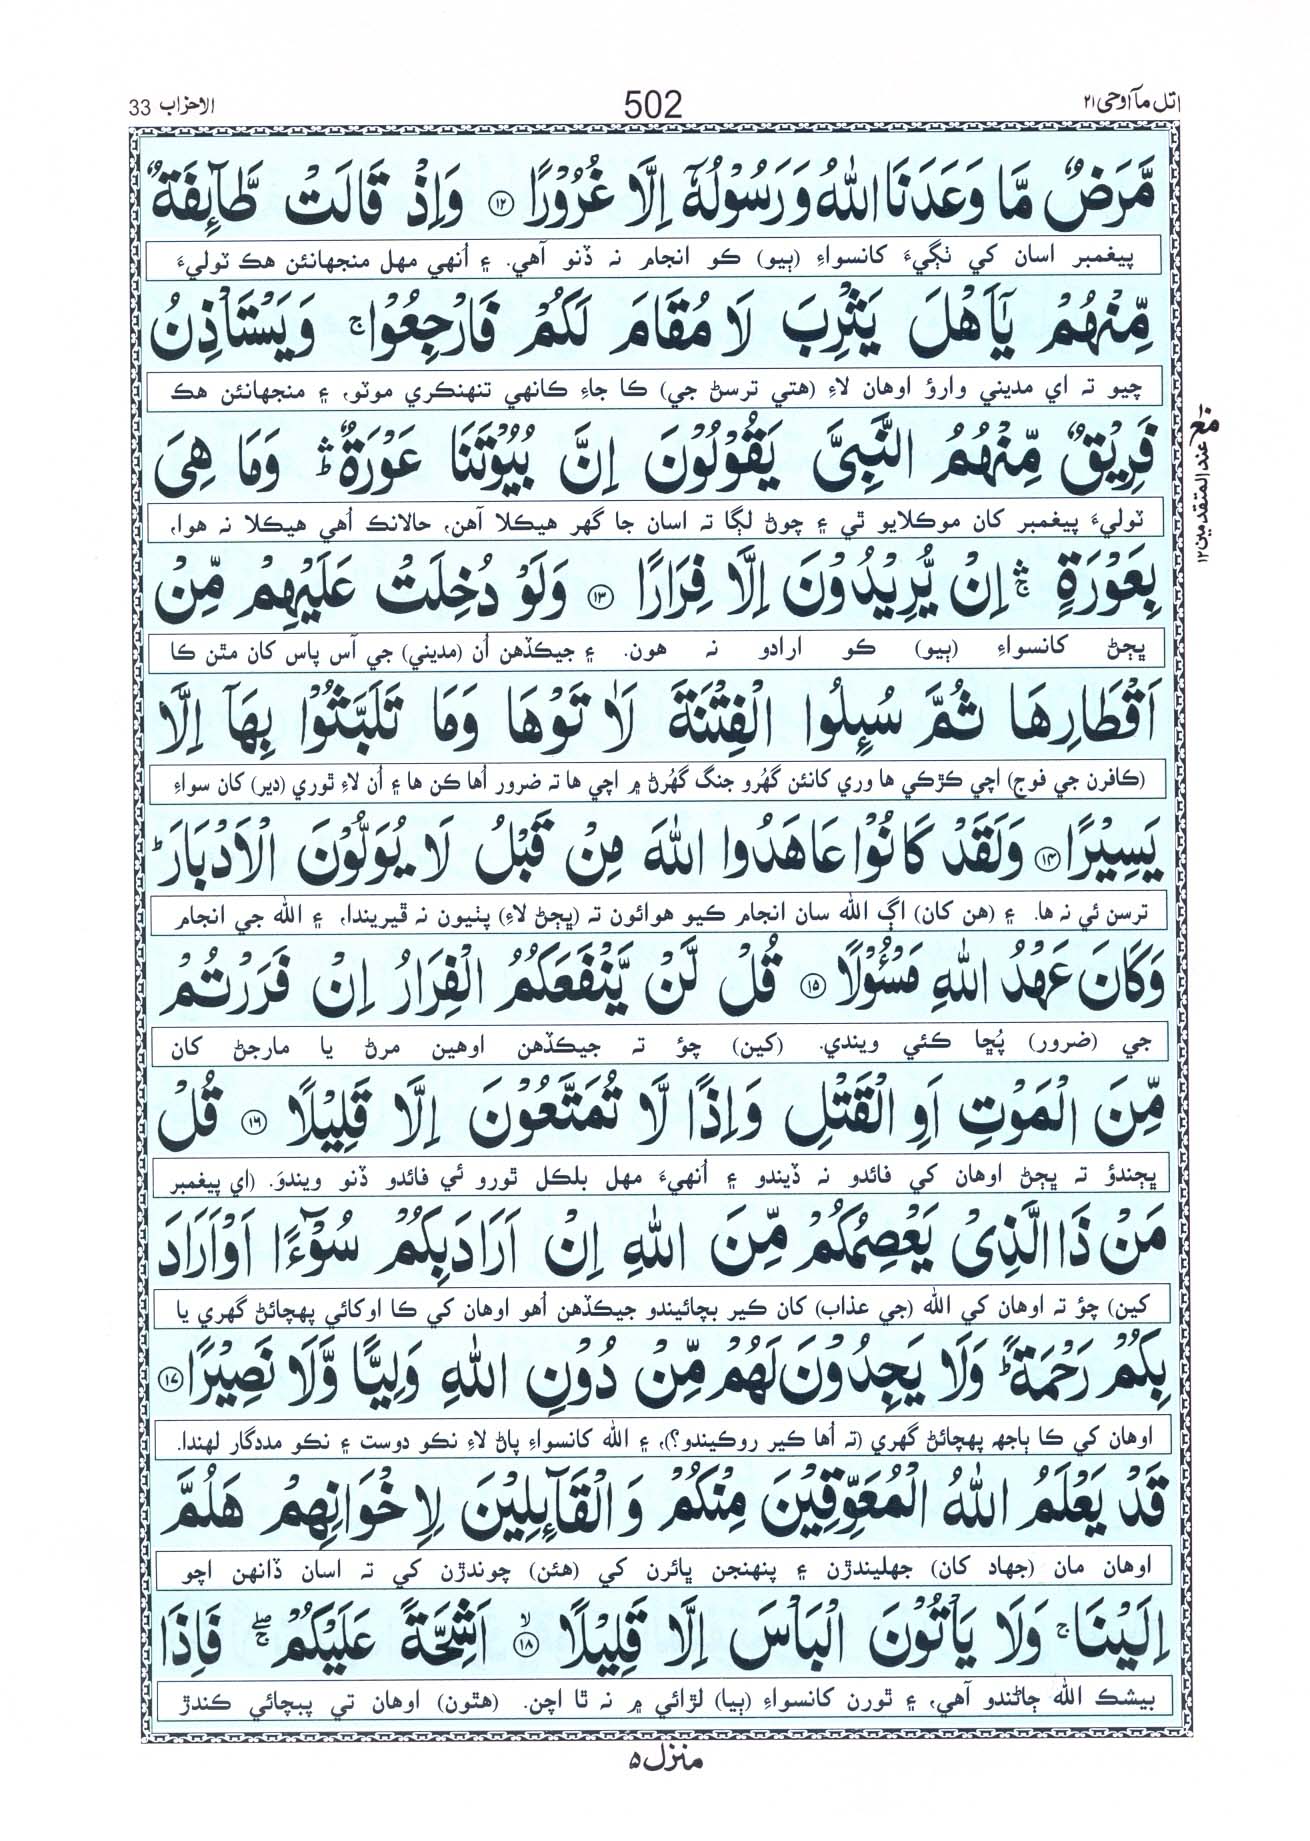 اتل مآ اوحی ۲۱
502
الاحزاب 33
مَّرَضٌ مَّا وَعَدَنَا اللّٰهُ وَرَسُوْلُهٗۤ اِلَّا غُرُوْرًا ⑫ وَاِذْ قَالَتْ طَّآىِٕفَةٌ
پيغمبر اسان کي ٺڳيءَ کانسواءِ (ٻيو) ڪو انجام نہ ڏنو آهي. ۽ اُنهي مهل منجهانئن هڪ ٽوليءَ
مِّنْهُمْ يٰۤاَهْلَ يَثْرِبَ لَا مُقَامَ لَكُمْ فَارْجِعُوْا ۚ وَيَسْتَاْذِنُ
چيو تہ اي مديني وارؤ اوهان لاءِ (هتي ترسڻ جي) ڪا جاءِ ڪانهي تنهنڪري موٽو، ۽ منجهانئن هڪ
فَرِيْقٌ مِّنْهُمُ النَّبِىَّ يَقُوْلُوْنَ اِنَّ بُيُوْتَنَا عَوْرَةٌ ۛؕ وَمَا هِىَ
ٽوليءَ پيغمبر کان موڪلايو ٿي ۽ چوڻ لڳا تہ اسان جا گهر هيڪلا آهن، حالانڪ اُهي هيڪلا نہ هوا،
بِعَوْرَةٍ ۛۚ اِنْ يُّرِيْدُوْنَ اِلَّا فِرَارًا ⑬ وَلَوْ دُخِلَتْ عَلَيْهِمْ مِّنْ
ڀڄڻ کانسواءِ (ٻيو) ڪو ارادو نہ هون. ۽ جيڪڏهن اُن (مديني) جي آس پاس کان مٿن ڪا
اَقْطَارِهَا ثُمَّ سُىِٕلُوا الْفِتْنَةَ لَاٰتَوْهَا وَمَا تَلَبَّثُوْا بِهَاۤ اِلَّا
(ڪافرن جي فوج) اچي ڪڙڪي ها وري کانئن گهُرو جنگ گهُرڻ ۾ اچي ها تہ ضرور اُها ڪن ها ۽ اُن لاءِ ٿوري (دير) کان سواءِ
يَسِيْرًا ⑭ وَلَقَدْ كَانُوْا عَاهَدُوا اللّٰهَ مِنْ قَبْلُ لَا يُوَلُّوْنَ الْاَدْبَارَ ؕ
ترسن ئي نہ ها. ۽ (هن کان) اڳ الله سان انجام ڪيو هوائون تہ (ڀڄڻ لاءِ) پٺيون نہ ڦيريندا، ۽ الله جي انجام
وَكَانَ عَهْدُ اللّٰهِ مَسْـُٔوْلًا ⑮ قُلْ لَّنْ يَّنْفَعَكُمُ الْفِرَارُ اِنْ فَرَرْتُمْ
جي (ضرور) پُڇا ڪئي ويندي. (کين) چؤ تہ جيڪڏهن اوهين مرڻ يا مارجڻ کان
مِّنَ الْمَوْتِ اَوِ الْقَتْلِ وَاِذًا لَّا تُمَتَّعُوْنَ اِلَّا قَلِيْلًا ⑯ قُلْ
ڀڄندؤ تہ ڀڄڻ اوهان کي فائدو نہ ڏيندو ۽ اُنهيءَ مهل بلڪل ٿورو ئي فائدو ڏنو ويندوَ. (اي پيغمبر
مَنْ ذَا الَّذِىْ يَعْصِمُكُمْ مِّنَ اللّٰهِ اِنْ اَرَادَ بِكُمْ سُوْٓءًا اَوْ اَرَادَ
کين) چؤ تہ اوهان کي الله (جي عذاب) کان ڪير بچائيندو جيڪڏهن اُهو اوهان کي ڪا اوکائي پهچائڻ گهري يا
بِكُمْ رَحْمَةً ؕ وَلَا يَجِدُوْنَ لَهُمْ مِّنْ دُوْنِ اللّٰهِ وَلِيًّا وَّلَا نَصِيْرًا ⑰
اوهان کي ڪا ٻاجهہ پهچائڻ گهري (تہ اُها ڪير روڪيندو؟)، ۽ الله کانسواءِ پاڻ لاءِ نڪو دوست ۽ نڪو مددگار لهندا.
قَدْ يَعْلَمُ اللّٰهُ الْمُعَوِّقِيْنَ مِنْكُمْ وَالْقَآىِٕلِيْنَ لِاِخْوَانِهِمْ هَلُمَّ
اوهان مان (جهاد کان) جهليندڙن ۽ پنهنجن ڀائرن کي (هئن) چوندڙن کي تہ اسان ڏانهن اچو
اِلَيْنَا ۚ وَلَا يَاْتُوْنَ الْبَاْسَ اِلَّا قَلِيْلًا ۙ⑱ اَشِحَّةً عَلَيْكُمْ ۖۚ فَاِذَا
بيشڪ الله ڄاڻندو آهي، ۽ ٿورن کانسواءِ (ٻيا) لڙائي ۾ نہ ٿا اچن. (هٿون) اوهان تي پيچائي ڪندڙ
مع عند المتقدمین ۱۲
منزل ۵